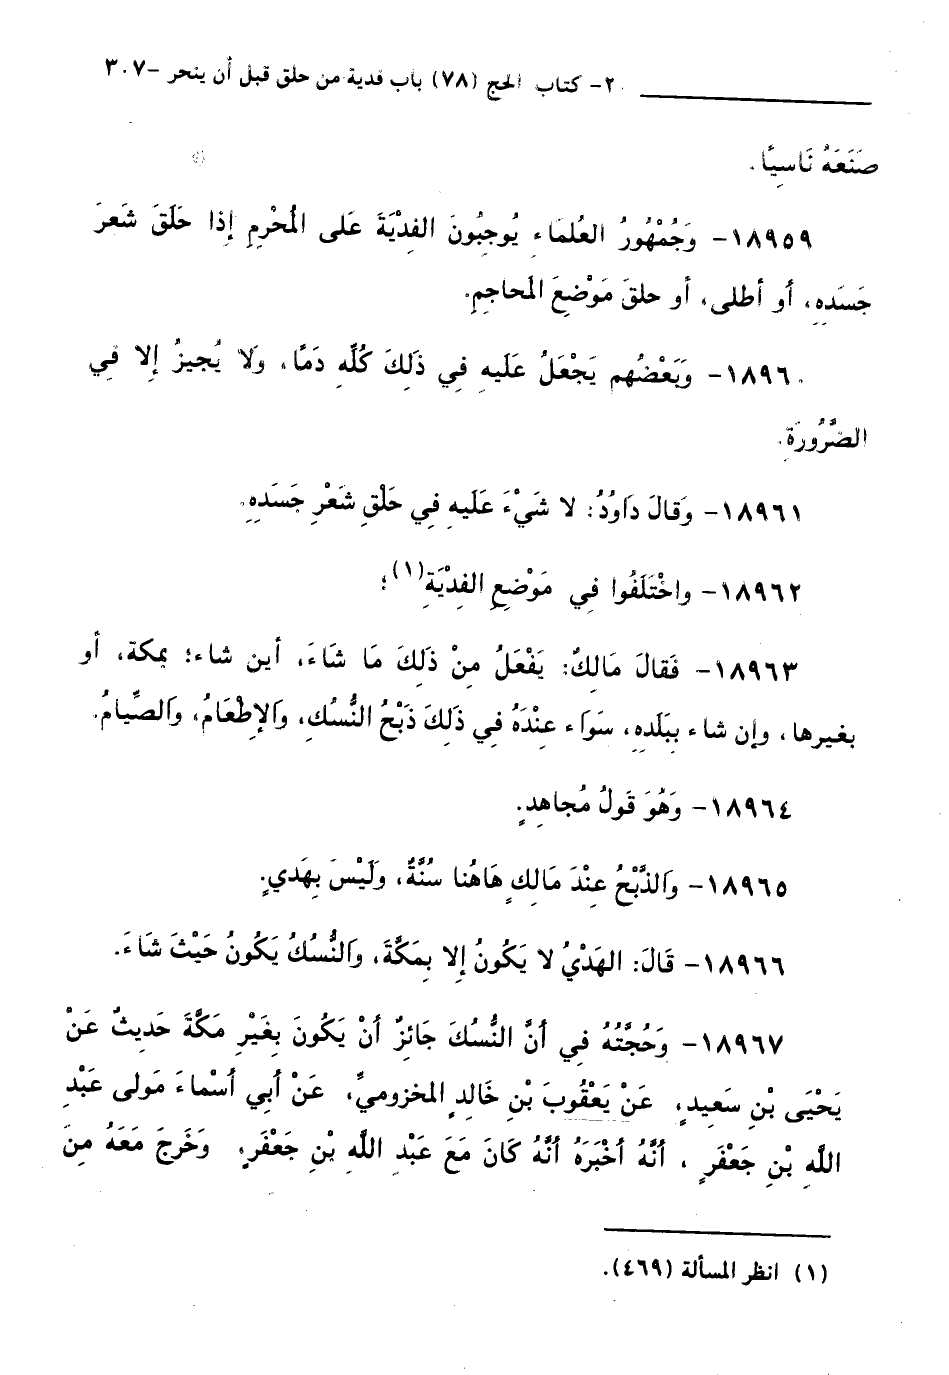 ٢- كتاب الحج (٧٨) باب فدية من حلق قبل أن ينحر -٣٠٧
صَنَعَهُ نَاسِيًا.
١٨٩٥٩- وَجُمْهُورُ العُلمَاءِ يُوجِبُونَ الفِدْيَةَ عَلى المُحْرِمِ إِذا حَلَقَ شَعرَ
جَسَدِهِ، أو أطلى، أو حلقَ مَوْضِعَ المَحاجِمِ.
١٨٩٦٠- وَبَعْضُهم يَجْعَلُ عَلَيهِ فِي ذَلِكَ كُلِّهِ دَمًا، وَلا يُجيزُ إِلا فِي
الضَّرُورَةِ.
١٨٩٦١- وَقالَ دَاوُدُ: لا شَيْءَ عَلَيهِ فِي حَلْقِ شَعْرِ جَسَدِهِ.
١٨٩٦٢- واخْتَلَفُوا فِي مَوْضِعِ الفِدْيَةِ(١)؛
١٨٩٦٣- فَقالَ مَالِكٌ: يَفْعَلُ مِنْ ذَلِكَ مَا شَاءَ، أين شاء؛ بمكة، أو
بغيرها، وإن شاء بِبَلَدِهِ، سَوَاء عِنْدَهُ فِي ذَلِكَ ذَبْحُ النُّسُكِ، وَالإِطْعَامُ، وَالصِّيَامُ.
١٨٩٦٤- وَهُوَ قَولُ مُجاهِدٍ.
١٨٩٦٥- وَالذَّبْحُ عِنْدَ مَالِكٍ هَاهُنا سُنَّةٌ، وَلَيْسَ بِهَديٍ.
١٨٩٦٦- قَالَ: الهَدْيُ لا يَكُونُ إِلا بِمَكَّةَ، وَالنُّسُكُ يَكُونُ حَيْثَ شَاءَ.
١٨٩٦٧- وَحُجَّتُهُ فِي أَنَّ النُّسكَ جَائِزٌ أَنْ يَكُونَ بِغَيْرِ مَكَّةَ حَديثٌ عَنْ
يَحْيَى بْنِ سَعِيدٍ، عَنْ يَعْقُوبَ بْنِ خَالِدٍ المخزوميِّ، عَنْ أبي أَسْمَاءَ مَولى عَبْدِ
اللَّهِ بْنِ جَعْفَرٍ ، أَنَّهُ أَخْبَرَهُ أَنَّهُ كَانَ مَعَ عَبْدِ اللَّهِ بْنِ جَعْفَرٍ، وَخَرجَ مَعَهُ مِنَ
(١) انظر المسألة (٤٦٩).